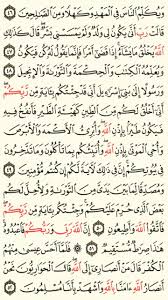 وَيُكَلِّمُ ٱلنَّاسَ فِي ٱلۡمَهۡدِ وَكَهۡلٗا وَمِنَ ٱلصَّٰلِحِينَ ٤٦
قَالَتۡ رَبِّ أَنَّىٰ يَكُونُ لِي وَلَدٞ وَلَمۡ يَمۡسَسۡنِي بَشَرٞۖ قَالَ كَذَٰلِكِ
ٱللَّهُ يَخۡلُقُ مَا يَشَآءُۚ إِذَا قَضَىٰٓ أَمۡرٗا فَإِنَّمَا يَقُولُ لَهُۥ كُن فَيَكُونُ ٤٧
وَيُعَلِّمُهُ ٱلۡكِتَٰبَ وَٱلۡحِكۡمَةَ وَٱلتَّوۡرَىٰةَ وَٱلۡإِنجِيلَ ٤٨
وَرَسُولًا إِلَىٰ بَنِيٓ إِسۡرَٰٓءِيلَ أَنِّي قَدۡ جِئۡتُكُم بِـَٔايَةٖ مِّن رَّبِّكُمۡ
أَنِّيٓ أَخۡلُقُ لَكُم مِّنَ ٱلطِّينِ كَهَيۡـَٔةِ ٱلطَّيۡرِ فَأَنفُخُ فِيهِ
فَيَكُونُ طَيۡرَۢا بِإِذۡنِ ٱللَّهِۖ وَأُبۡرِئُ ٱلۡأَكۡمَهَ وَٱلۡأَبۡرَصَ
وَأُحۡيِ ٱلۡمَوۡتَىٰ بِإِذۡنِ ٱللَّهِۖ وَأُنَبِّئُكُم بِمَا تَأۡكُلُونَ وَمَا تَدَّخِرُونَ
فِي بُيُوتِكُمۡۚ إِنَّ فِي ذَٰلِكَ لَأٓيَةٗ لَّكُمۡ إِن كُنتُم مُّؤۡمِنِينَ ٤٩
وَمُصَدِّقٗا لِّمَا بَيۡنَ يَدَيَّ مِنَ ٱلتَّوۡرَىٰةِ وَلِأُحِلَّ لَكُم
بَعۡضَ ٱلَّذِي حُرِّمَ عَلَيۡكُمۡۚ وَجِئۡتُكُم بِـَٔايَةٖ مِّن رَّبِّكُمۡ
فَٱتَّقُواْ ٱللَّهَ وَأَطِيعُونِ ٥٠ إِنَّ ٱللَّهَ رَبِّي وَرَبُّكُمۡ فَٱعۡبُدُوهُۚ
هَٰذَا صِرَٰطٞ مُّسۡتَقِيمٞ ٥١ ۞ فَلَمَّآ أَحَسَّ عِيسَىٰ مِنۡهُمُ
ٱلۡكُفۡرَ قَالَ مَنۡ أَنصَارِيٓ إِلَى ٱللَّهِۖ قَالَ ٱلۡحَوَارِيُّونَ نَحۡنُ
أَنصَارُ ٱللَّهِ ءَامَنَّا بِٱللَّهِ وَٱشۡهَدۡ بِأَنَّا مُسۡلِمُونَ ٥٢